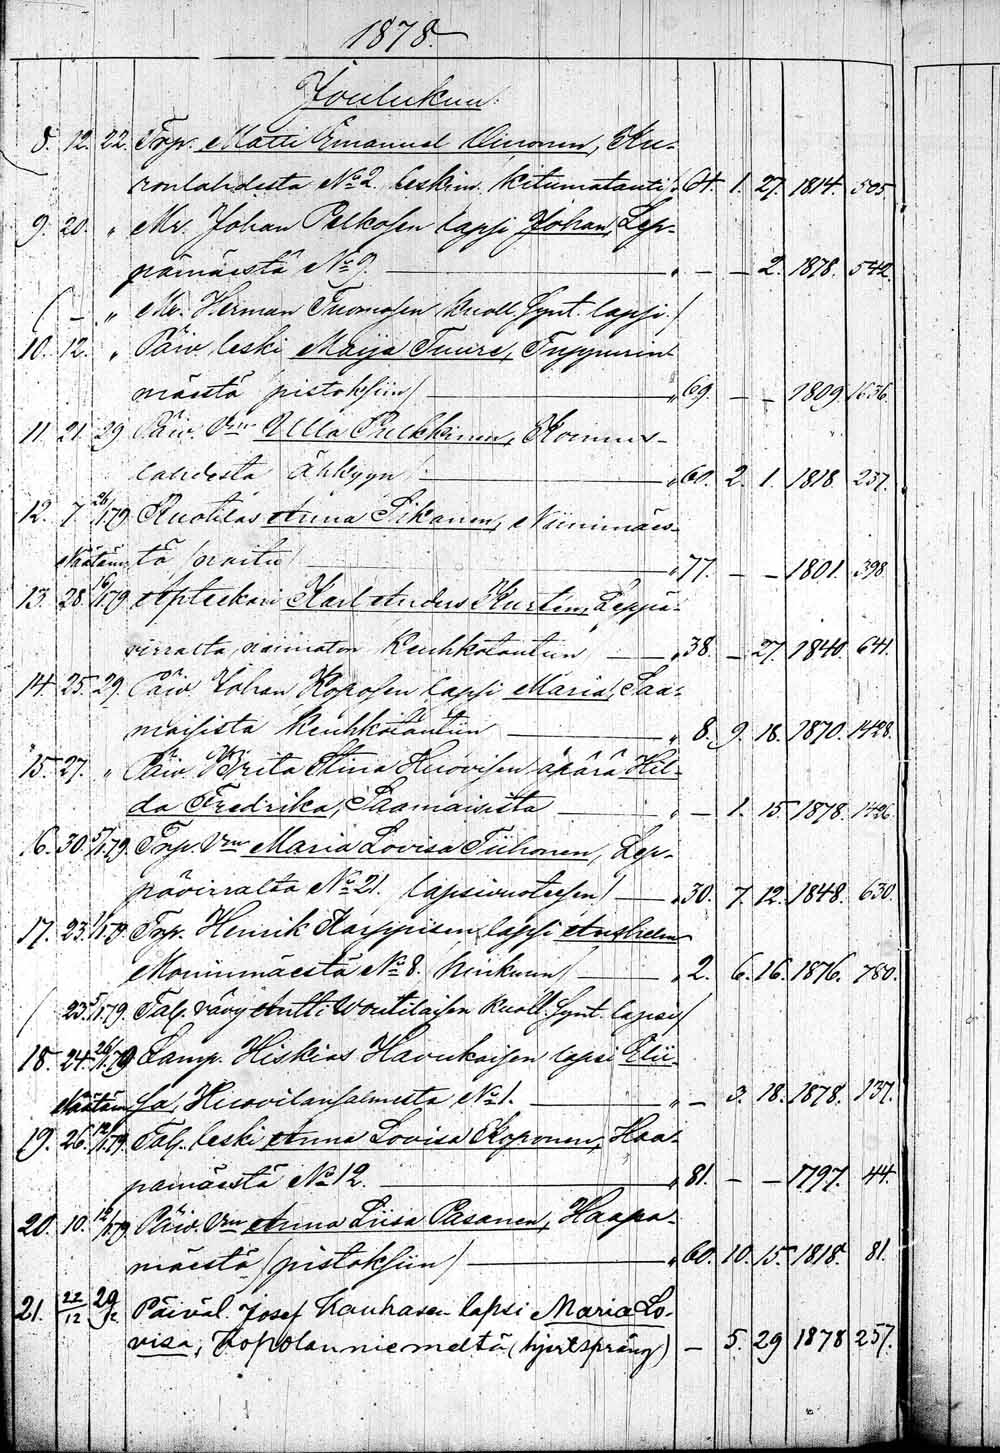 1878.
Joulukuu.
8. 12. 22. Trp. Matti Emanuel Vinonen, Ku-
ronlahdesta No 2. leskim. kitumatauti " 64. 1. 27. 1814. 505.
9. 20. " Mr. Johan Pelkosen lapsi Johan, Lep-
pämäestä No 9. " — — 2. 1878. 542.
( — " Mr. Herman Tuomosen kuoll. synt. lapsi. )
10. 12. " Päiv. leski Maija Tuure, Tuppurin
mäestä (pistoksiin) " 69. — — 1809. 1636.
11. 21. 29. Päiv. Vm Ulla Pulkkinen,
lahdesta Ähkyyn) " 60. 2. 1. 1818. 257.
12. 7. 26/1 79. Ruotilas Anna Pikanen, Niinimäes-
tä " 77. — — 1801. 398.
13. 28. 16/1 79. Apteekari Karl Anders Kurtén, Leppä-
virralta, naimaton Keuhkotautiin " 38. — 27. 1840. 641.
14. 25. 29. Päiv. Johan Koposen lapsi Maria, Saa-
maisista Keuhkotautiin " 8. 9. 18. 1870. 1428.
15. 27. " Päiv. Brita Stina Huovisen äpärä Hil-
da Fredrika, Saamaisista " — 1. 15. 1878. 1426.
16. 30. 5/1 79. Trp. Vm Maria Lovisa Tiihonen, Lep-
pävirralta No 21. lapsivuoteesen) " 30. 7. 12. 1848. 630.
17. 23. 1/1 79. Trp. Henrik Karppisen lapsi Anshelm
Moninmäestä No 8. hinkuun) " 2. 6. 16. 1876. 780.
( 23. 5/1 79. Tal. vävy Antti Woutilaisen kuoll. synt. lapsi)
18. 24. 26/1 79. Lamp. Hiskias Havukaisen lapsi Elii-
sa, Huovilansalmesta No 1. " — 3. 18. 1878. 137.
19. 26. 12/1 79. Tal. leski Anna Lovisa Koponen, Haa-
pamäestä No 12. " 81. — — 1797. 44.
20. 10. 12/1 79. Päiv. Vm Anna Liisa Pasanen, Haapa-
mäestä (pistoksiin) " 60. 10. 15. 1818. 81.
21. 22/12 29/12 Päiväl. Josef Kauhasen lapsi Maria Lo-
visa, Kopolanniemeltä (hjertspräng) — 5. 29 1878 257.